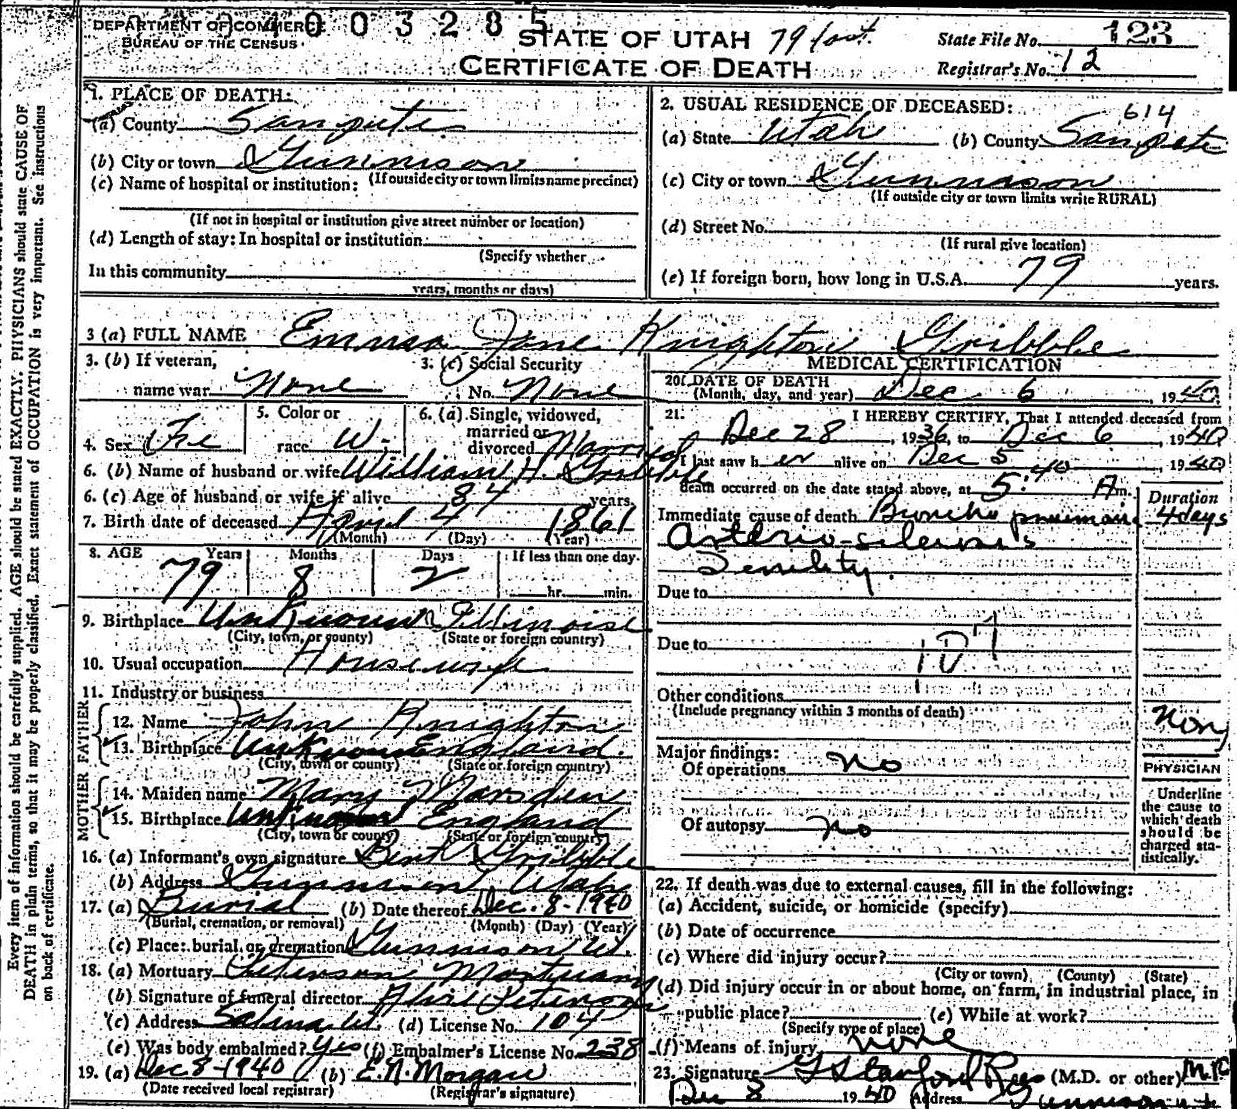 DEPARTMENT OF COMMERCE
BUREAU OF THE CENSUS
4003285
STATE OF UTAH
CERTIFICATE OF DEATH
State File No. 123
Registrar's No. 12
Every item of information should be carefully supplied. AGE should be stated EXACTLY. PHYSICIANS should state CAUSE OF
DEATH in plain terms, so that it may be properly classified. Exact statement of OCCUPATION is very important. See instructions
on back of certificate.
1. PLACE OF DEATH:
(a) County Sanpete
(b) City or town Gunnison
(If outside city or town limits name precinct)
(c) Name of hospital or institution:
(If not in hospital or institution give street number or location)
(d) Length of stay: In hospital or institution
(Specify whether
In this community
years, months or days)
2. USUAL RESIDENCE OF DECEASED: 614
(a) State Utah (b) County Sanpete
(c) City or town Gunnison
(If outside city or town limits write RURAL)
(d) Street No.
(If rural give location)
(e) If foreign born, how long in U.S.A. 79 years.
3 (a) FULL NAME Emma Jane Knighton Gribble
3. (b) If veteran,
name war None
3. (c) Social Security
No. None
4. Sex Fe
5. Color or
race W.
6. (a) Single, widowed,
married or
divorced Married
6. (b) Name of husband or wife William H. Gribble
6. (c) Age of husband or wife if alive 84 years.
7. Birth date of deceased April 4 1861
(Month) (Day) (Year)
8. AGE Years Months Days If less than one day
79 8 2 hr. min.
9. Birthplace Unknown Illinoise
(City, town, or county) (State or foreign country)
10. Usual occupation Housewife
11. Industry or business
FATHER
12. Name John Knighton
13. Birthplace Unknown England
(City, town or county) (State or foreign country)
MOTHER
14. Maiden name Mary Marsden
15. Birthplace Unknown England
(City, town or county) (State or foreign country)
16. (a) Informant's own signature Bert Gribble
(b) Address Gunnison Utah
17. (a) Burial (b) Date thereof Dec. 8-1940
(Burial, cremation, or removal) (Month) (Day) (Year)
(c) Place: burial or cremation Gunnison Ut.
18. (a) Mortuary Peterson Mortuary
(b) Signature of funeral director Peterson
(c) Address Salina Ut. (d) License No. 104
(e) Was body embalmed? Yes (f) Embalmer's License No. 238
19. (a) Dec 8-1940 (b) E. N. Morgan
(Date received local registrar) (Registrar's signature)
MEDICAL CERTIFICATION
20. DATE OF DEATH
(Month, day, and year) Dec 6, 1940
21. I HEREBY CERTIFY, That I attended deceased from
Dec 28, 1936, to Dec 6, 1940
I last saw her alive on Dec 5, 1940
death occurred on the date stated above, at 5:40 A m.
Duration
Immediate cause of death Broncho pneumonia 4 days
Arterio-sclerosis
Senility
Due to
Due to 107
Other conditions
(Include pregnancy within 3 months of death)
Major findings:
Of operations no
Of autopsy no
PHYSICIAN
Underline
the cause to
which death
should be
charged sta-
tistically.
22. If death was due to external causes, fill in the following:
(a) Accident, suicide, or homicide (specify)
(b) Date of occurrence
(c) Where did injury occur?
(City or town) (County) (State)
(d) Did injury occur in or about home, on farm, in industrial place, in
public place? (e) While at work?
(Specify type of place)
(f) Means of injury none
23. Signature G Stanford Rees (M.D. or other) M.D.
Dec 8 1940 Address Gunnison Ut